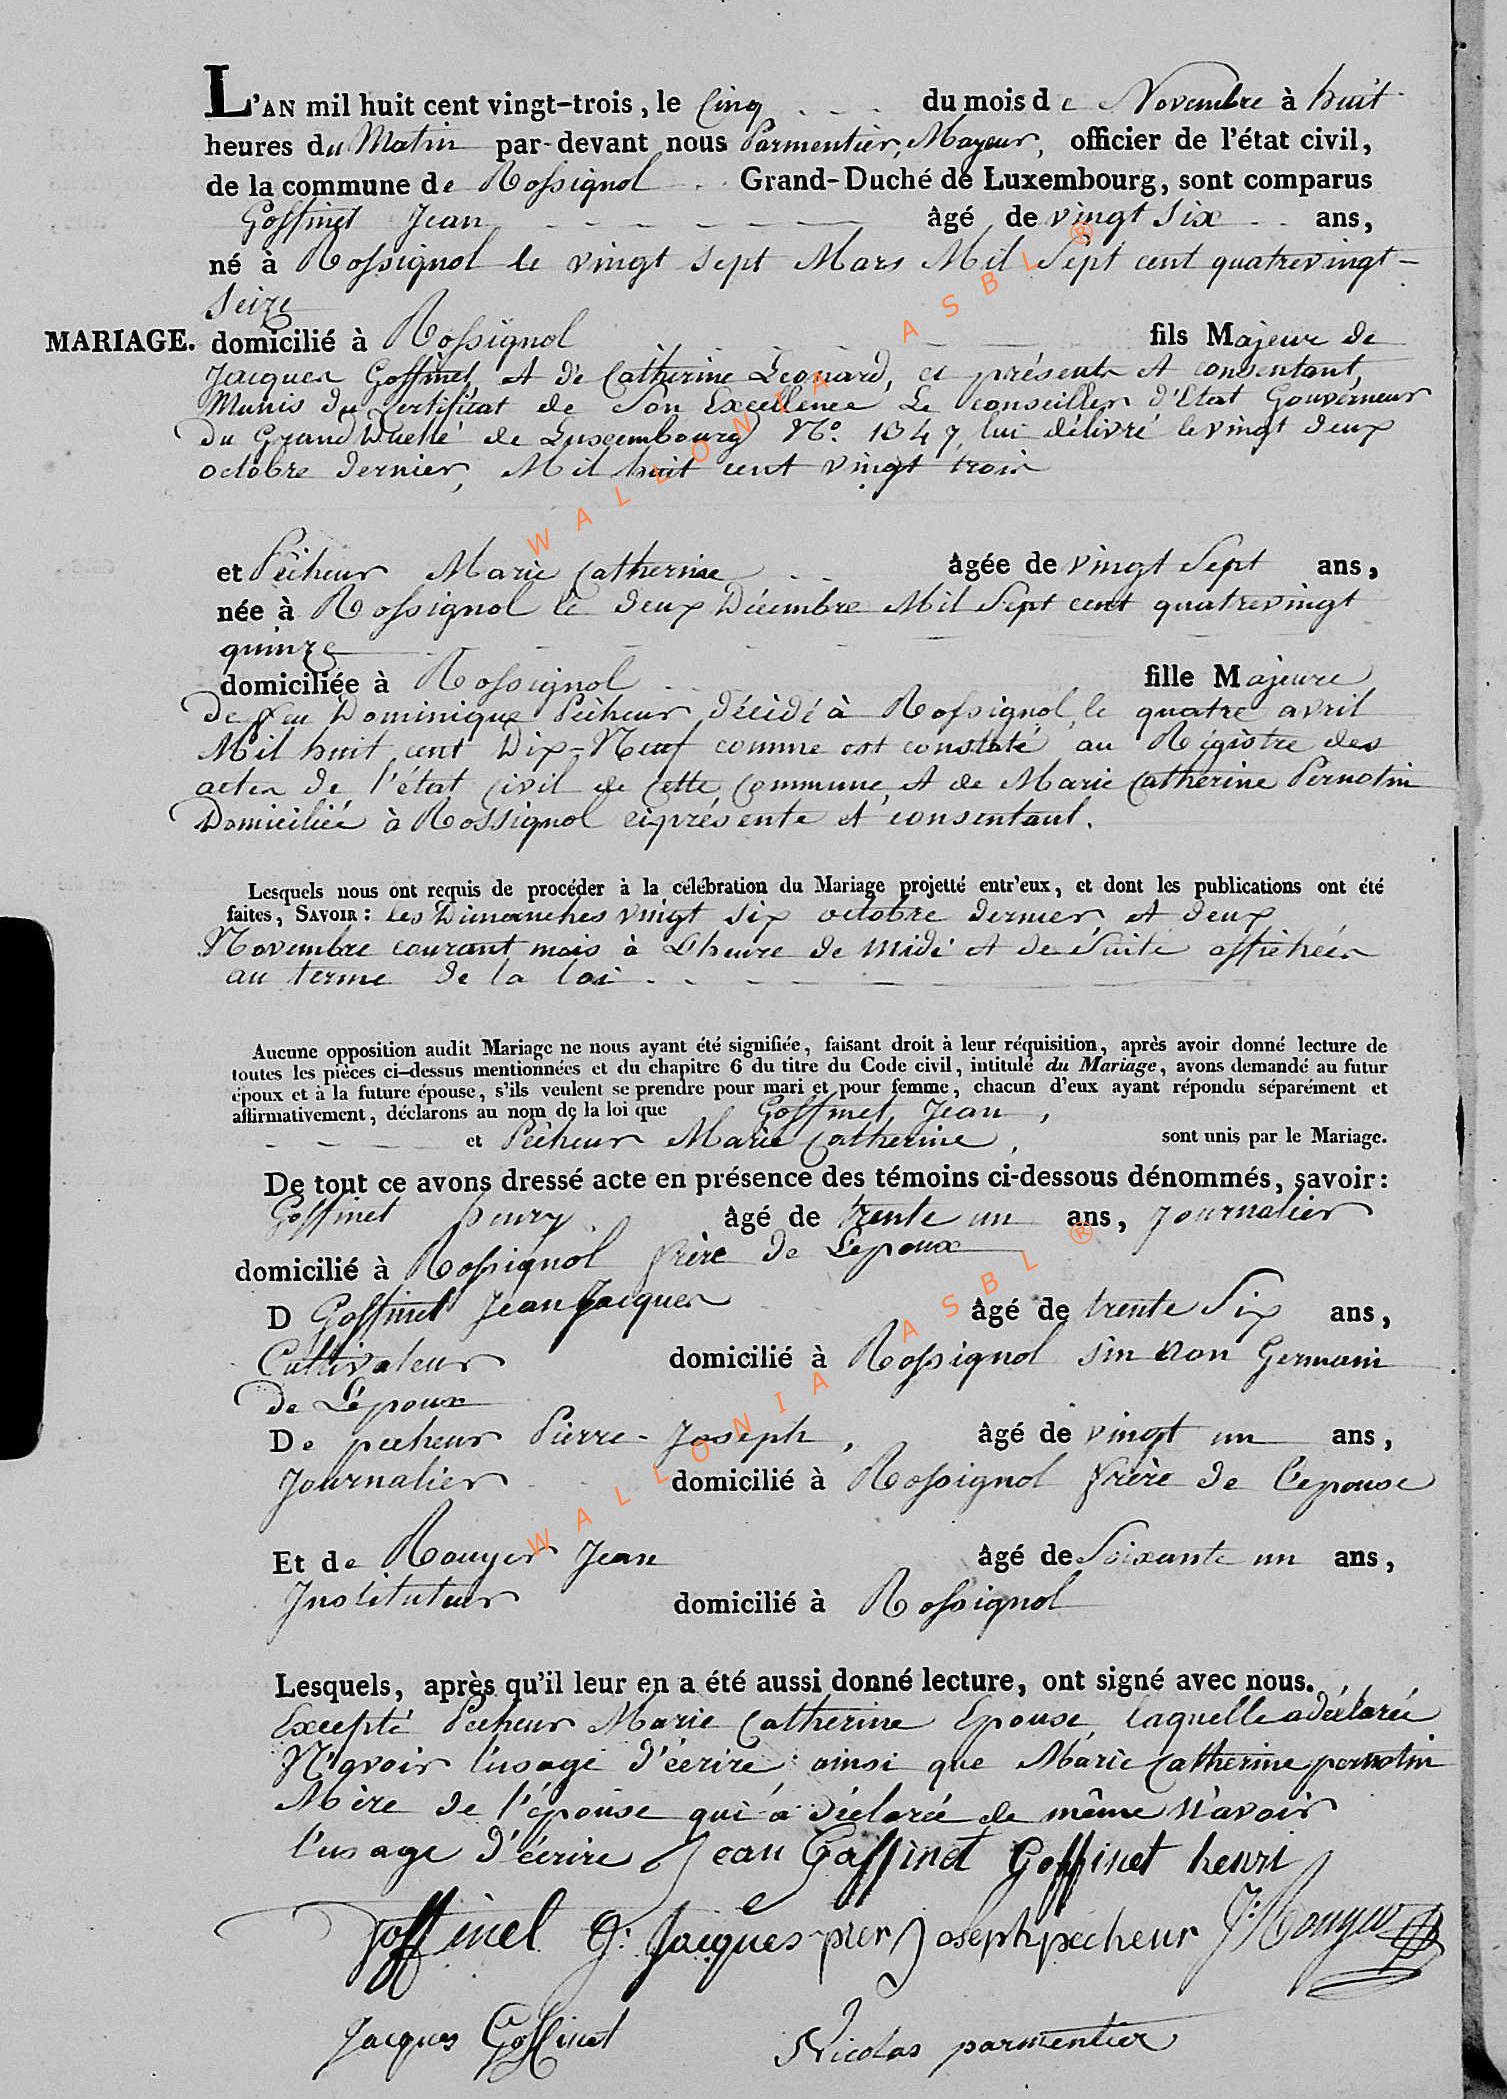 L'AN mil huit cent vingt-trois, le Cinq du mois de Novembre à huit
heures du Matin par-devant nous Parmentier, Mayeur, officier de l'état civil,
de la commune de Rossignol Grand-Duché de Luxembourg, sont comparus
Goffinet Jean âgé de vingt six ans,
né à Rossignol le vingt sept Mars Mil Sept cent quatrevingt-
Seize
MARIAGE. domicilié à Rossignol fils Majeur de
Jacques Goffinet, et de Catherine Leonard, ci présents et consentant,
Munis du Certificat de Son Excellence Le conseiller d'Etat Gouverneur
du Grand Duché de Luxembourg N.º 1347, lui délivré le vingt deux
octobre dernier, Mil huit cent vingt trois
et Pécheur Marie Catherine âgée de vingt Sept ans,
née à Rossignol le deux Décembre Mil Sept cent quatrevingt
quinze
domiciliée à Rossignol fille Majeure
de feu Dominique Pécheur décédé à Rossignol le quatre avril
Mil huit cent Dix-Neuf comme est constaté au Régistre des
actes de l'état Civil de Cette Commune, et de Marie Catherine Pernotin
Domiciliée à Rossignol ciprésente et consentant.
Lesquels nous ont requis de procéder à la célébration du Mariage projetté entr'eux, et dont les publications ont été
faites, SAVOIR : Les Dimanches vingt six octobre dernier et deux
Novembre courant mois à L'heure de midi et de Suite affichées
au terme de la loi
Aucune opposition audit Mariage ne nous ayant été signifiée, faisant droit à leur réquisition, après avoir donné lecture de
toutes les pièces ci-dessus mentionnées et du chapitre 6 du titre du Code civil, intitulé du Mariage, avons demandé au futur
époux et à la future épouse, s'ils veulent se prendre pour mari et pour femme, chacun d'eux ayant répondu séparément et
affirmativement, déclarons au nom de la loi que Goffinet Jean,
et Pécheur Marie Catherine, sont unis par le Mariage.
De tout ce avons dressé acte en présence des témoins ci-dessous dénommés, savoir :
Goffinet henry âgé de trente un ans, Journalier
domicilié à Rossignol frère de L'epoux
D Goffinet Jean Jacques âgé de trente Six ans,
Cultivateur domicilié à Rossignol Germain
de L'époux
De pecheur Pierre-Joseph, âgé de vingt un ans,
Journalier domicilié à Rossignol frère de l'epouse
Et de Rouyer Jean âgé de Soixante un ans,
Instituteur domicilié à Rossignol
Lesquels, après qu'il leur en a été aussi donné lecture, ont signé avec nous.
Excepté Pecheur Marie Catherine Epouse, laquelle a déclarée
N'avoir l'usage d'écrire ainsi que Marie Catherine pernotin
Mère de l'épouse qui a déclarée de même N'avoir
l'usage d'écrire Jean Goffinet Goffinet henri
goffinet J. Jacques pier Joseph pecheur J. Rouyer
Jacques Goffinet Nicolas parmentier
WALLONIA ASBL ®
WALLONIA ASBL ®